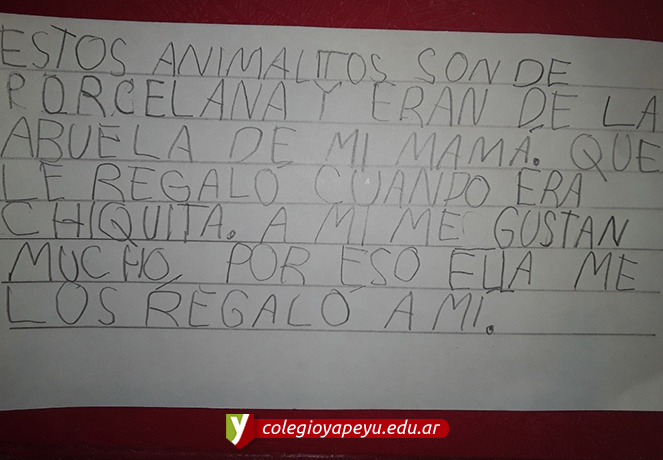 ESTOS ANIMALITOS SON DE
PORCELANA Y ERAN DE LA
ABUELA DE MI MAMÁ. QUE
LE REGALÓ CUANDO ERA
CHIQUITA. A MI ME GUSTAN
MUCHO, POR ESO ELLA ME
LOS REGALÓ A MI.
y colegioyapeyu.edu.ar